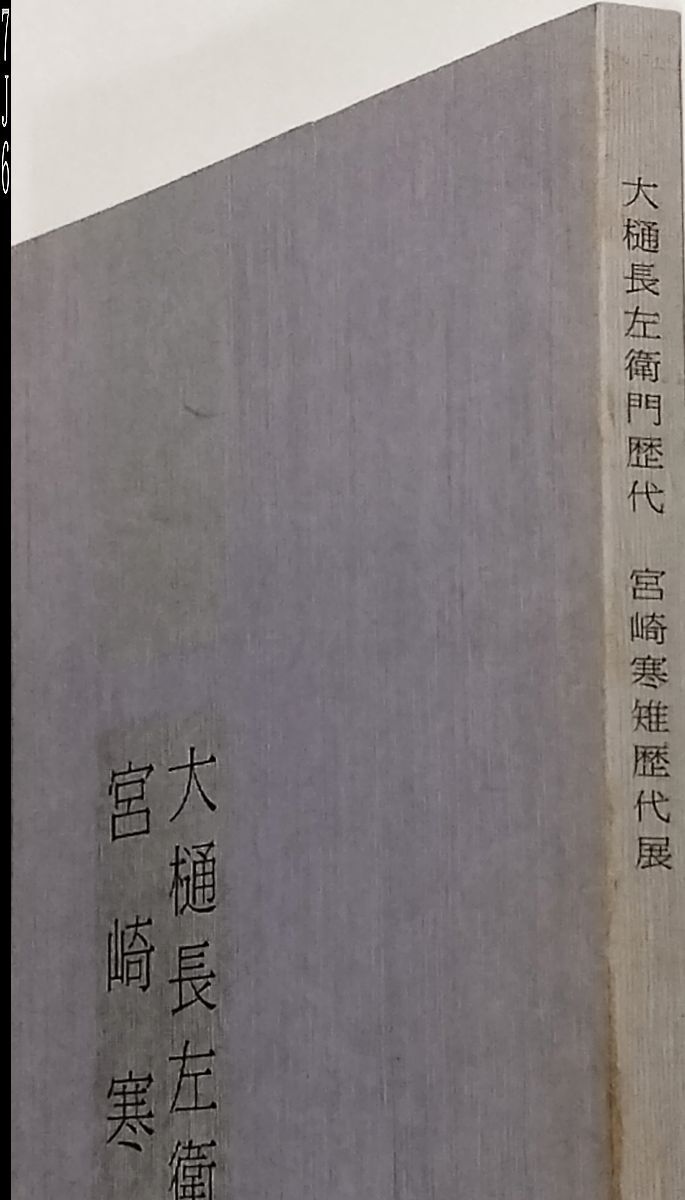 7J6
大樋長左衛門歴代　宮崎寒雉歴代展
大樋長左衛
宮崎寒